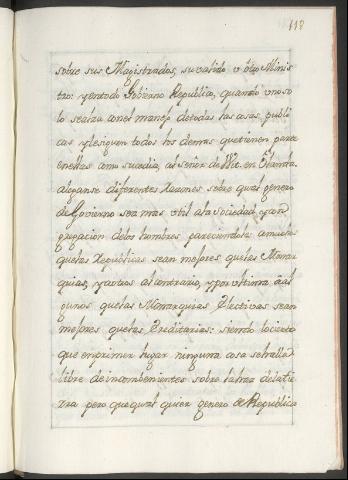 118
sobre sus Magistrados, su valido v otro Minis
tro: y entodo Gobierno Republica, quando vno so
lo se alza con el manejo de todas las cosas publi
cas y lesiguen todos los demas que tienen parte
en ellas como sucedia, al señor de Wit. en Olanda.
aleganse diferentes razones sobre qual genero
de Govierno sea mas vtil ala Sociedad, y con
gregacion delos hombres pareciendoles amuchos
que las Republicas sean mejores que las Monar
quias, y a otros al contrario, y por vltimo aal
gunos que las Monarquias Electivas sean
mejores que las Ereditarias: siendo lo cierto
que en primer lugar ninguna cosa se halla
libre de incombenientes sobre la haz dela tie
rra pero que qual quier genero de Republica